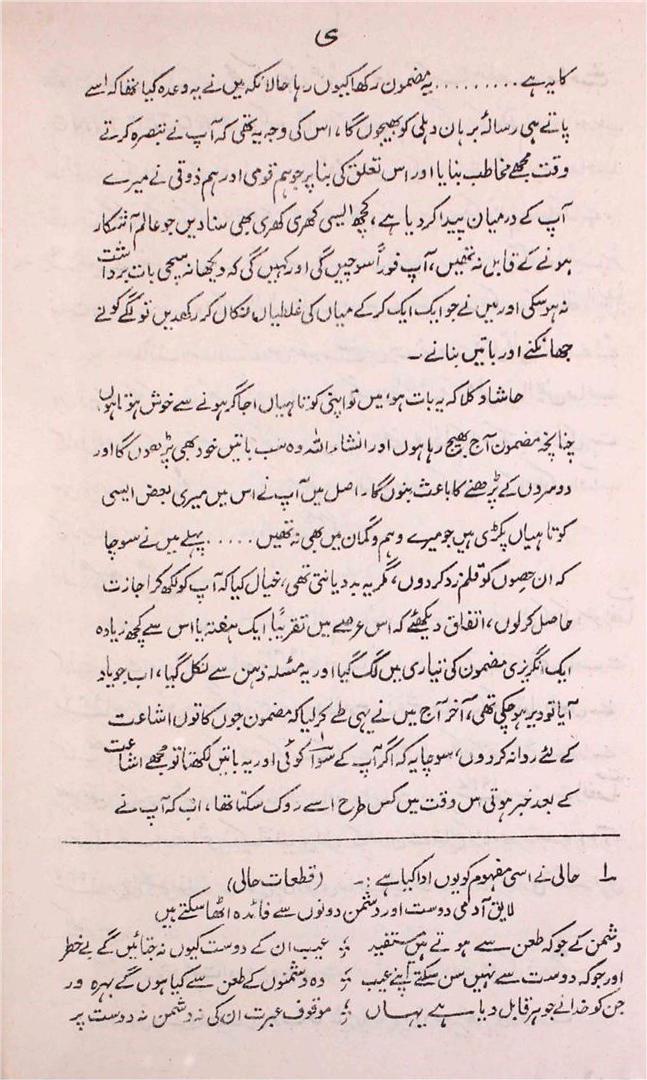 ی
کا یہ ہے ......... یہ مضمون رکھا کیوں رہا حالانکہ میں نے یہ وعدہ کیا تھا کہ اسے
پاتے ہی رسالۂ برہان دہلی کو بھیجوں گا، اس کی وجہ یہ تھی کہ آپ نے تبصرہ کرتے
وقت مجھے مخاطب بنایا اور اس تعلق کی بنا پر جو ہم قومی اور ہم ذوقی نے میرے
آپ کے درمیان پیدا کر دیا ہے، کچھ ایسی کھری کھری بھی سنا دیں جو عالم آشکار
ہونے کے قابل نہ تھیں، آپ فوراً سوچیں گی اور کہیں گی کہ دیکھا نہ سچی بات برداشت
نہ ہو سکی اور میں نے جو ایک ایک کر کے میاں کی غلطیاں نکال کر رکھدیں تو لگے کونے
جھانکنے اور باتیں بنانے۔
حاشا و کلا کہ یہ بات ہو، میں تو اپنی کوتاہیاں اجاگر ہونے سے خوش ہوتا ہوں
چنانچہ مضمون آج بھیج رہا ہوں اور انشاء اللہ وہ سب باتیں خود بھی پڑھوں گا اور
دوسروں کے پڑھنے کا باعث بنوں گا۔ اصل میں آپ نے اس میں میری بعض ایسی
کوتاہیاں پکڑی ہیں جو میرے وہم و گمان میں بھی نہ تھیں ..... پہلے میں نے سوچا
کہ ان حصوں کو قلم زد کر دوں، مگر یہ بد دیانتی تھی، خیال کیا کہ آپ کو لکھ کر اجازت
حاصل کر لوں، اتفاق دیکھئے کہ اس عرصے میں تقریباً ایک ہفتہ یا اس سے کچھ زیادہ
ایک انگریزی مضمون کی تیاری میں لگ گیا اور یہ مسئلہ ذہن سے نکل گیا، اب جو یاد
آیا تو دیر ہو چکی تھی، آخر آج میں نے یہی طے کر لیا کہ مضمون جوں کا توں اشاعت
کے لئے روانہ کر دوں، سوچا یہ کہ اگر آپ کے سوا کوئی اور یہ باتیں لکھتا تو مجھے اشاعت
کے بعد خبر ہوتی اس وقت میں کس طرح اسے روک سکتا تھا، اب کہ آپ نے
۱ حالی نے اسی مفہوم کو یوں ادا کیا ہے :۔ (قطعات حالی)
لایق آدمی دوست اور دشمن دونوں سے فائدہ اٹھا سکتے ہیں
دشمن کے جو کہ طعن سے ہوتے ہیں مستفید ؛ عیب ان کے دوست کیوں نہ جتائیں گے بے خطر
اور جو کہ دوست سے نہیں سن سکتے اپنے عیب ؛ وہ دشمنوں کے طعن سے کیا ہوں گے بہرہ ور
جن کو خدا نے جوہر قابل دیا ہے یہاں ؛ موقوف عبرت ان کی نہ دشمن نہ دوست پر